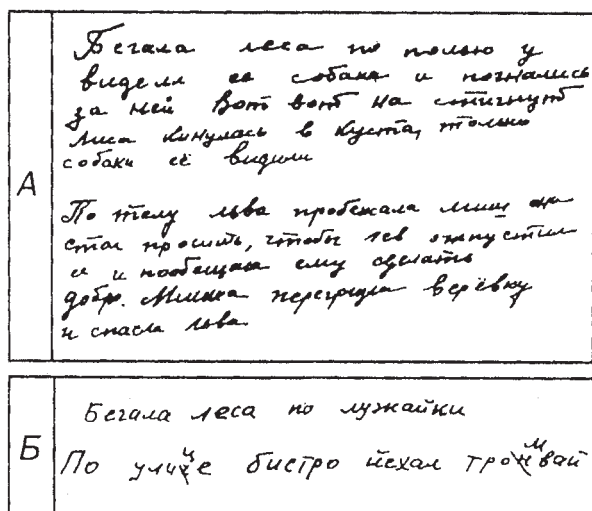 А
Бегала леса по полью у
видели ее собака и погнались
за ней Вот вот на стигнут
лиса кинулась в куста, только
собаки её видили
По телу льва пробежала мыш он
стал просить, чтобы лев отпустил
и пообещал ему сделать
добро. Мышка перегрызла верёвку
и спасла льва
Б
Бегала леса по лужайки
По улице быстро йехал тромвай